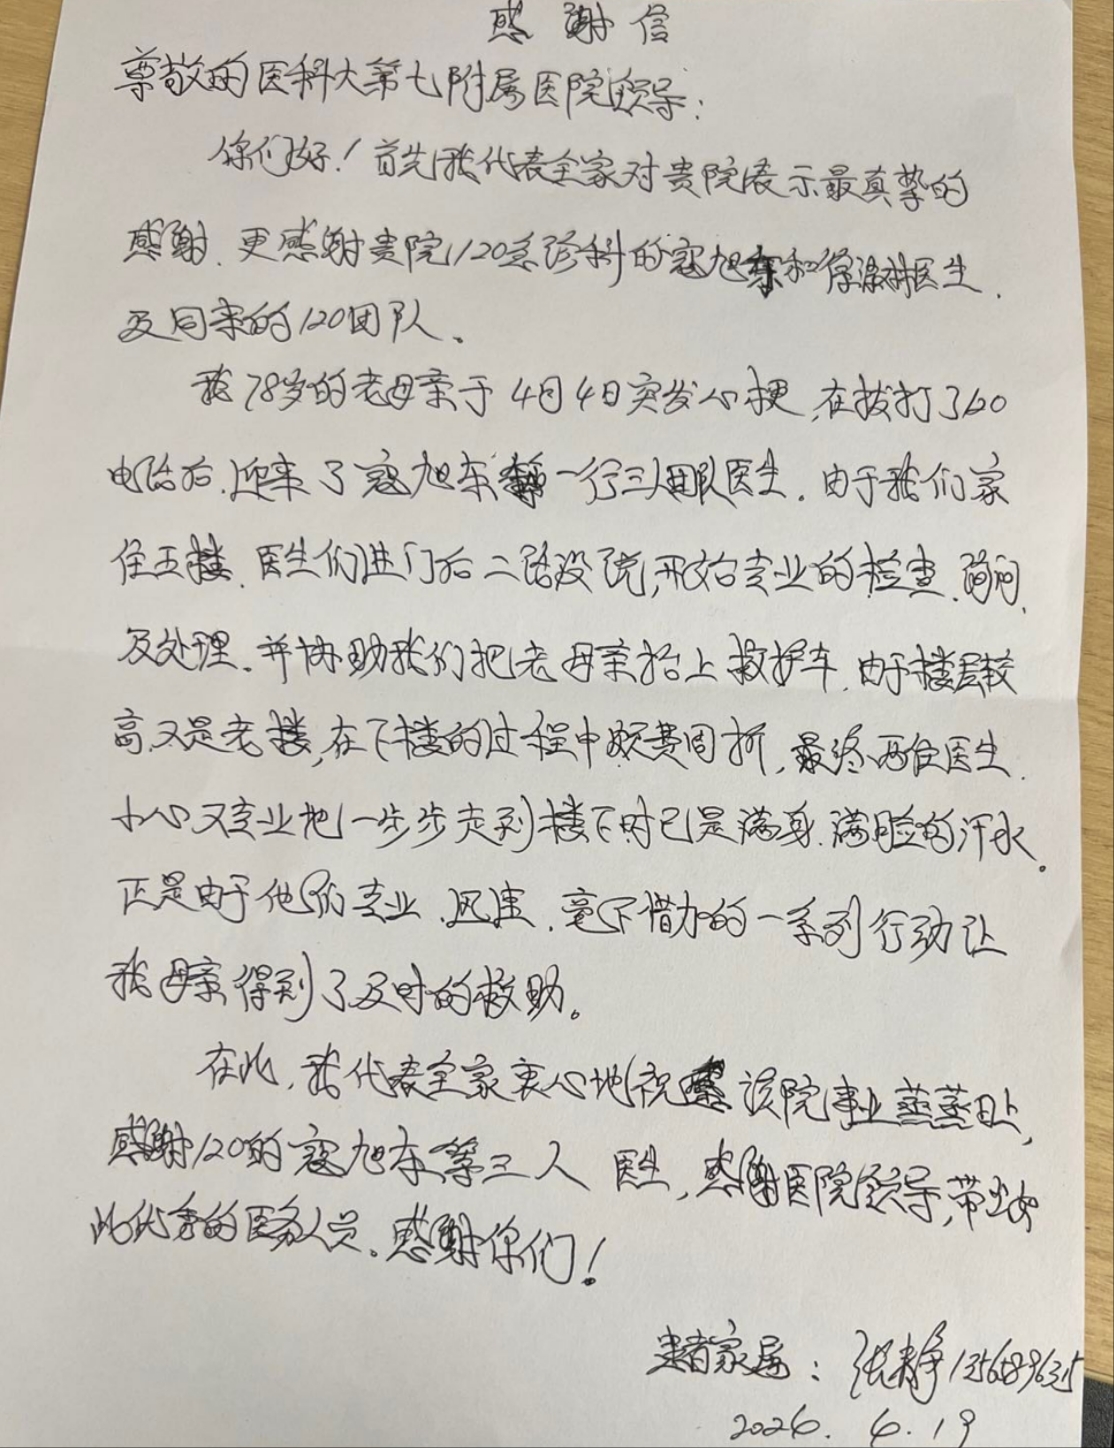 感谢信
尊敬的医科大第七附属医院领导:
你们好!首先我代表全家对贵院表示最真挚的
感谢、更感谢贵院120急诊科的寇旭东和徐医生、
及同来的120团队。
我78岁的老母亲于4月4日突发心梗,在拔打了120
电话后,迎来了寇旭东一行三人团队医生。由于我们家
住五楼、医生们进门后二话没说,开始专业的检查、询问、
及处理。并协助我们把老母亲抬上救护车、由于楼层较
高、又是老楼,在下楼的过程中颇费周折,最终两位医生、
小心又专业地一步步走到楼下时已是满身、满脸的汗水。
正是由于他们专业、迅速、毫不惜力的一系列行动让
我母亲得到了及时的救助。
在此,我代表全家衷心地祝该院事业蒸蒸日上,
感谢120的寇旭东等三人医生,感谢医院领导,带出如
此优秀的医务人员。感谢你们!
患者家属:张静
2026.4.19